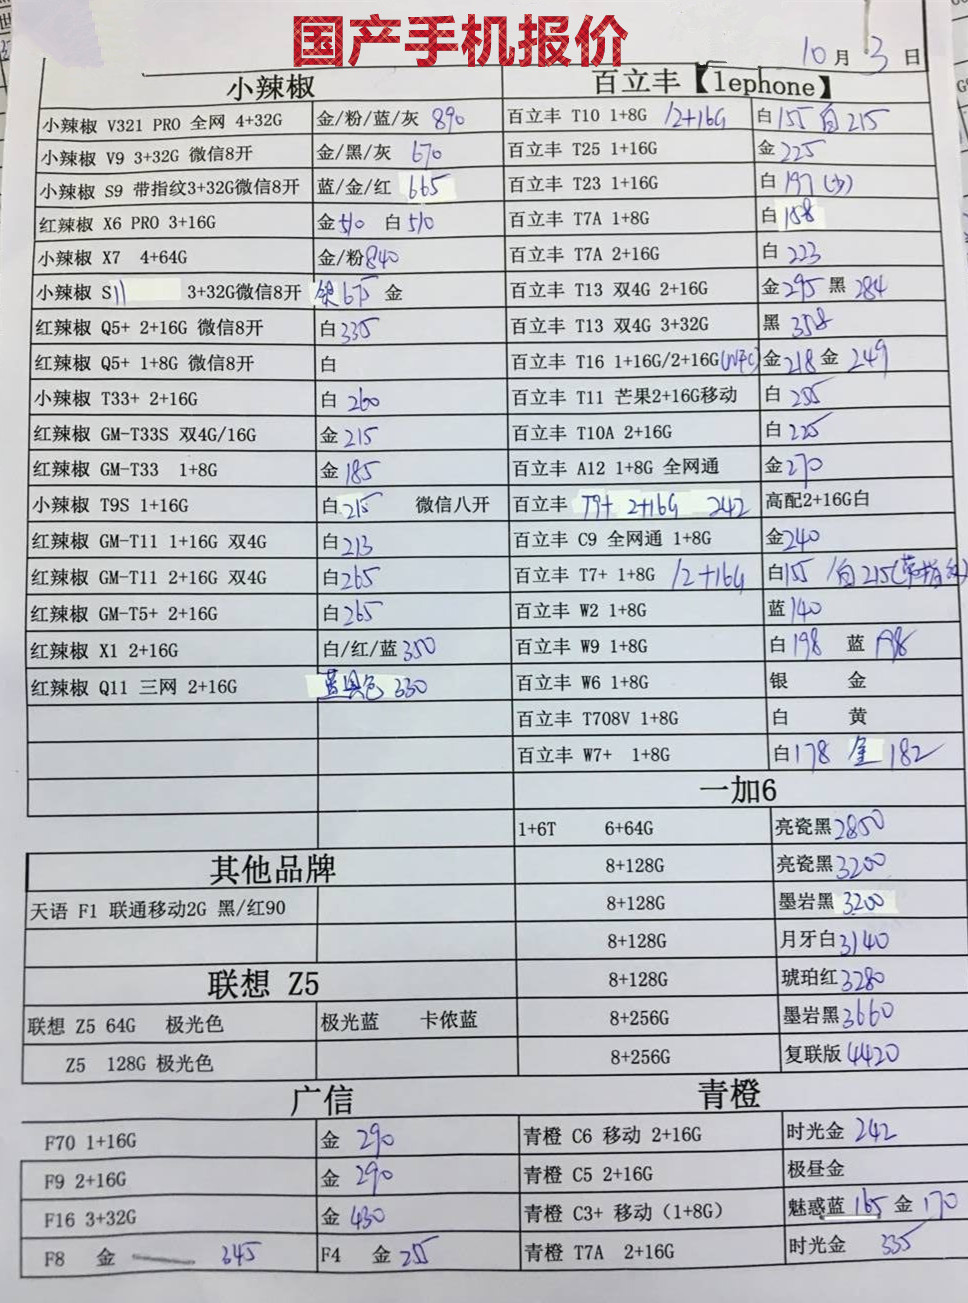 国产手机报价
10月3日
小辣椒
小辣椒 V321 PRO 全网 4+32G 金/粉/蓝/灰 890
小辣椒 V9 3+32G 微信8开 金/黑/灰 670
小辣椒 S9 带指纹3+32G微信8开 蓝/金/红 665
红辣椒 X6 PRO 3+16G 金510 白510
小辣椒 X7 4+64G 金/粉840
小辣椒 S11 3+32G微信8开 银675 金
红辣椒 Q5+ 2+16G 微信8开 白335
红辣椒 Q5+ 1+8G 微信8开 白
小辣椒 T33+ 2+16G 白 260
红辣椒 GM-T33S 双4G/16G 金215
红辣椒 GM-T33 1+8G 金185
小辣椒 T9S 1+16G 白215 微信八开
红辣椒 GM-T11 1+16G 双4G 白213
红辣椒 GM-T11 2+16G 双4G 白265
红辣椒 GM-T5+ 2+16G 白265
红辣椒 X1 2+16G 白/红/蓝350
红辣椒 Q11 三网 2+16G 蓝 色 330
百立丰【lephone】
百立丰 T10 1+8G /2+16G 白155 白215
百立丰 T25 1+16G 金225
百立丰 T23 1+16G 白197(少)
百立丰 T7A 1+8G 白158
百立丰 T7A 2+16G 白223
百立丰 T13 双4G 2+16G 金295黑284
百立丰 T13 双4G 3+32G 黑358
百立丰 T16 1+16G/2+16G 金218金249
百立丰 T11 芒果2+16G移动 白255
百立丰 T10A 2+16G 白225
百立丰 A12 1+8G 全网通 金270
百立丰 T9+ 2+16G 242 高配2+16G白
百立丰 C9 全网通 1+8G 金240
百立丰 T7+ 1+8G /2+16G 白155 /白215(带指纹)
百立丰 W2 1+8G 蓝140
百立丰 W9 1+8G 白198 蓝198
百立丰 W6 1+8G 银 金
百立丰 T708V 1+8G 白 黄
百立丰 W7+ 1+8G 白178 金182
一加6
1+6T 6+64G 亮瓷黑2850
8+128G 亮瓷黑3200
8+128G 墨岩黑3200
8+128G 月牙白3140
8+128G 琥珀红3280
8+256G 墨岩黑3660
8+256G 复联版4420
其他品牌
天语 F1 联通移动2G 黑/红90
联想 Z5
联想 Z5 64G 极光色 极光蓝 卡侬蓝
Z5 128G 极光色
广信
F70 1+16G 金 290
F9 2+16G 金 290
F16 3+32G 金 430
F8 金 345 F4 金255
青橙
青橙 C6 移动 2+16G 时光金 242
青橙 C5 2+16G 极昼金
青橙 C3+ 移动（1+8G） 魅惑蓝165金170
青橙 T7A 2+16G 时光金 335